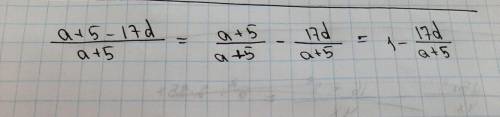 (a+5-17d)/(a+5) = (a+5)/(a+5) - 17d/(a+5) = 1 - 17d/(a+5)